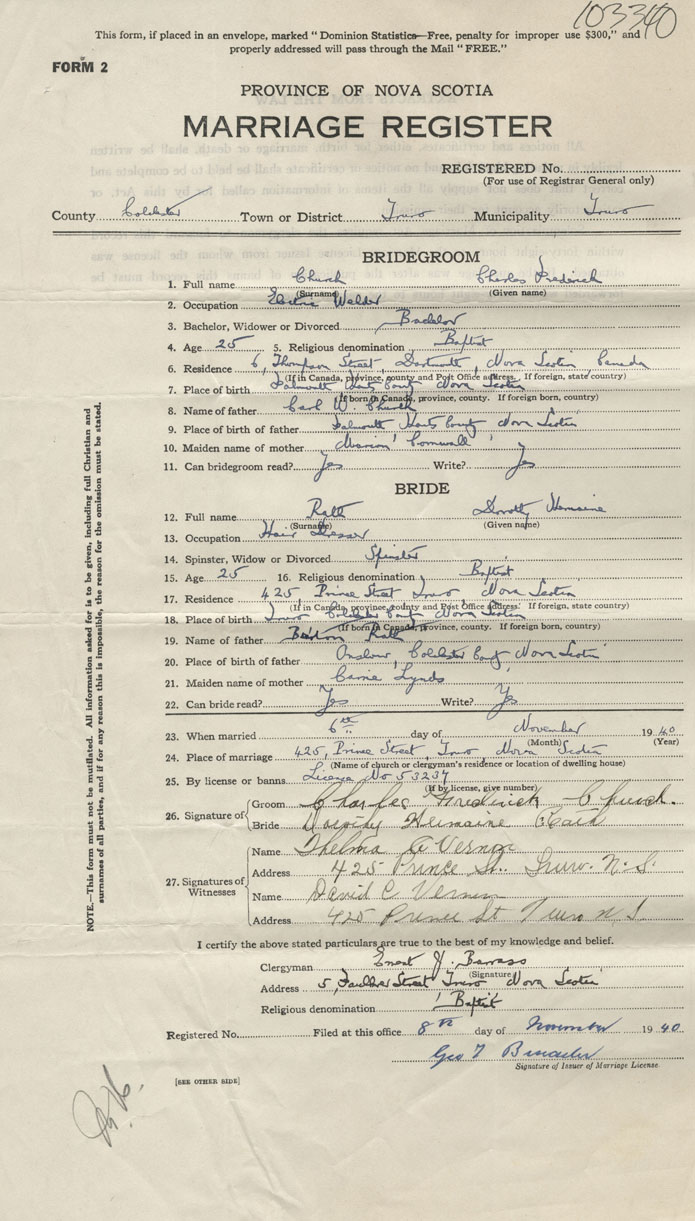 103340
This form, if placed in an envelope, marked "Dominion Statistics—Free, penalty for improper use $300," and
properly addressed will pass through the Mail "FREE."
FORM 2
PROVINCE OF NOVA SCOTIA
MARRIAGE REGISTER
REGISTERED No.
(For use of Registrar General only)
County Colchester Town or District Truro Municipality Truro
BRIDEGROOM
1. Full name Church Charles Frederick
(Surname) (Given name)
2. Occupation Electric Welder
3. Bachelor, Widower or Divorced Bachelor
4. Age 25 5. Religious denomination Baptist
6. Residence 6, Thompson Street, Dartmouth, Nova Scotia Canada
(If in Canada, province, county and Post Office address. If foreign, state country)
7. Place of birth Falmouth Hants County Nova Scotia
(If born in Canada, province, county. If foreign born, country)
8. Name of father Carl W. Church
9. Place of birth of father Falmouth Hants County Nova Scotia
10. Maiden name of mother Marion Cornwall
11. Can bridegroom read? Yes Write? Yes
BRIDE
12. Full name Rath Dorothy Hermaine
(Surname) (Given name)
13. Occupation Hair Dresser
14. Spinster, Widow or Divorced Spinster
15. Age 25 16. Religious denomination Baptist
17. Residence 425 Prince Street Truro Nova Scotia
(If in Canada, province, county and Post Office address. If foreign, state country)
18. Place of birth Truro Colchester County Nova Scotia
(If born in Canada, province, county. If foreign born, country)
19. Name of father Rath
20. Place of birth of father Onslow, Colchester County Nova Scotia
21. Maiden name of mother Carrie Lynds
22. Can bride read? Yes Write? Yes
23. When married 6th day of November 1940
(Month) (Year)
24. Place of marriage 425, Prince Street, Truro Nova Scotia
(Name of church or clergyman's residence or location of dwelling house)
25. By license or banns License No 53237
(If by license, give number)
26. Signature of Groom Charles Frederick Church.
Bride Dorothy Hermaine Rath
27. Signatures of Witnesses Name Thelma A Vernon
Address 425 Prince St. Truro. N.S.
Name David C Vernon
Address 425 Prince St Truro N S
I certify the above stated particulars are true to the best of my knowledge and belief.
Clergyman Ernest J. Barrass
(Signature)
Address 5, Faulkner Street Truro Nova Scotia
Religious denomination Baptist
Registered No. Filed at this office 8th day of November 1940.
Geo
Signature of Issuer of Marriage License.
[SEE OTHER SIDE]
NOTE.—This form must not be mutilated. All information asked for is to be given, including full Christian and
surnames of all parties, and if for any reason this is impossible, the reason for the omission must be stated.